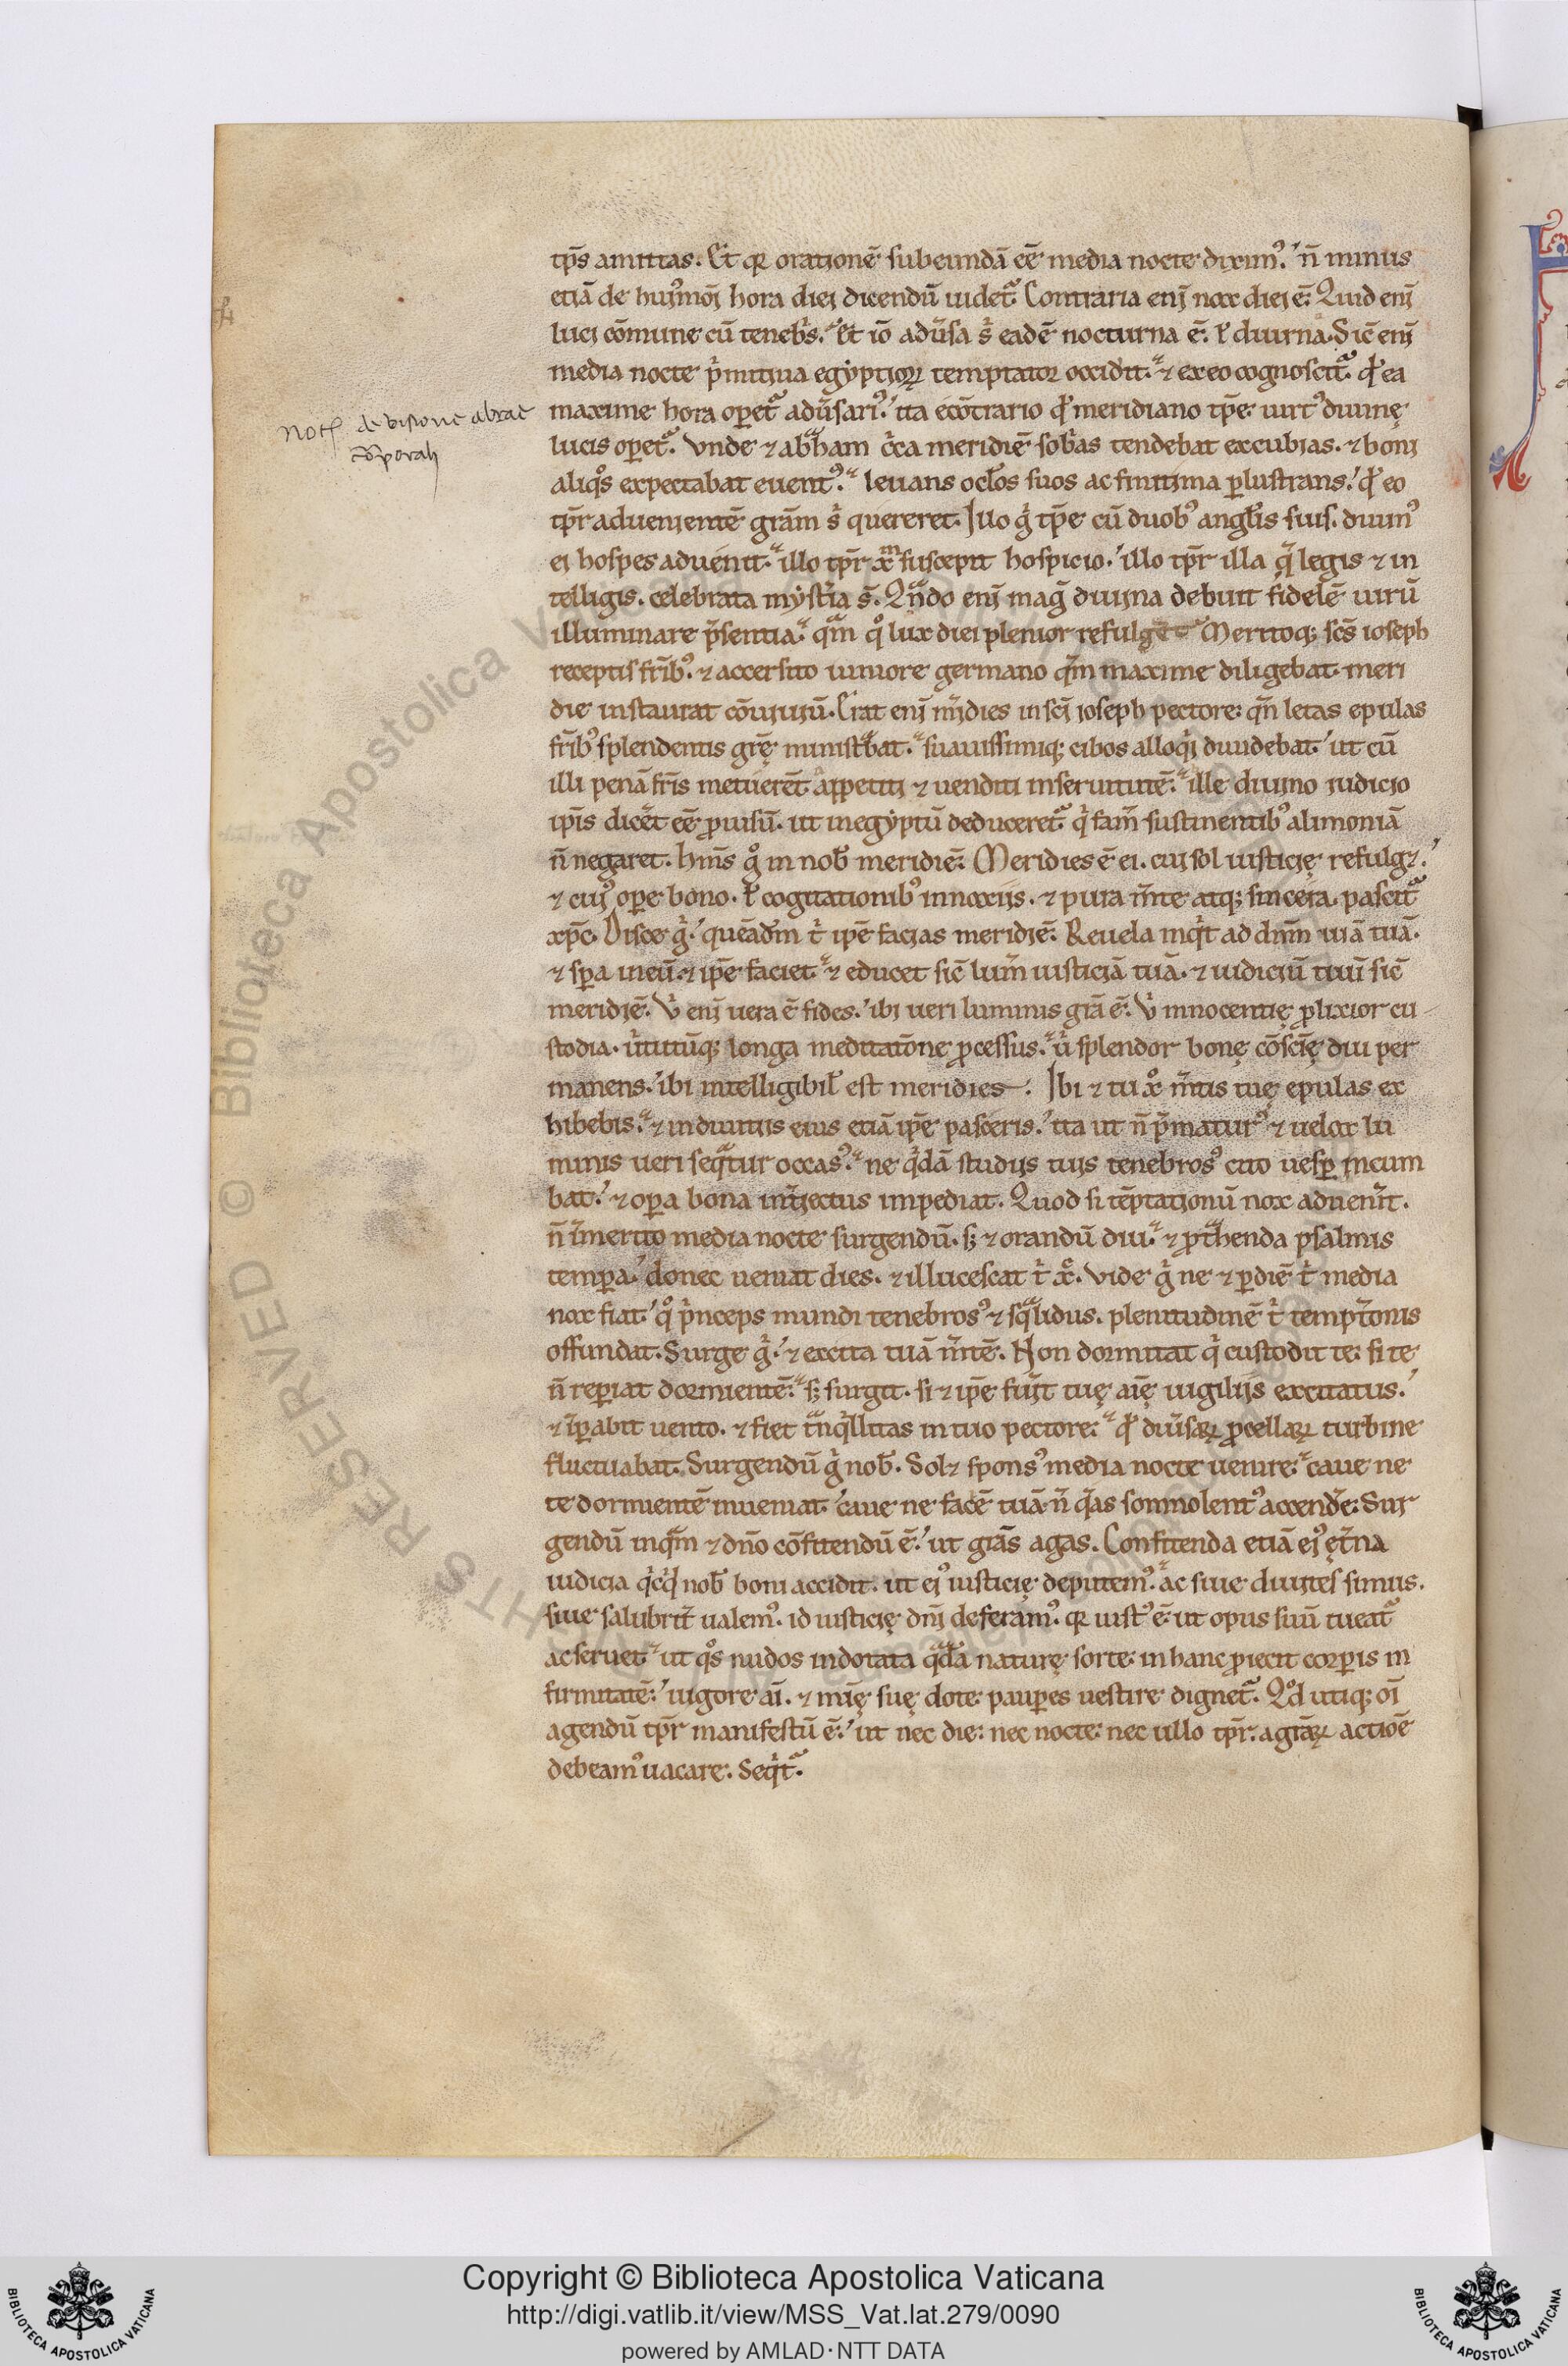 tp̄s amittas. Et qꝛ orationē subeundā eē media nocte dixim᷒. n̄ minus
etiā de huj᷒moj hora diej dicendū uidetᷣ. Contraria enj̄ nox diei ē. Quid enj̄
lucj cōmune cū tenebr̄s. Et iō adu̾sa s; eadē nocturna ē. ł diurna. Sic̄ enj̄
media nocte p'mitiua egyptioꝝ temptator occidit. ⁊ ex eo cognoscitᷣ qđ ea
maxime hora opetᷣ adu̾sari᷒. ita ecōtrario qđ meridiano tp̄e uirt᷒ diuinę
notą de visione abrae
cōrporali
lucis opetᷣ. Vnde ⁊ abᵃham c'ca meridiē sob'as tendebat excubias. ⁊ boni
aliqͦs expectabat euent᷒. leuans oclos suos ac finitima ꝑlustrans. qđ eo
tp̄r aduenientē grām s; quereret. Illo g' tp̄e cū duob᷒ angl̄is suis. diuin᷒
ej hospes aduenit. illo tp̄r xp̄m suscepit hospicio. illo tp̄r illa q̄ legis ⁊ in
telligis. celebrata myst'ia s̄. Qn̄do enj̄ mag̾ diuina debuit fidelē uirū
illuminare p̄sentia. qᵃm qͦ lux diei plenior refulget. Meritoq; scs̄ ioseph
receptis fr̄ib᷒. ⁊ accersito iuniore germano qᵃm maxime diligebat meri
die instaurat cōuiuiū. Erat enj̄ m̾idies in scj̄ ioseph pectore: qn̄ letas epulas
fr̄ib᷒ splendentis gr̄ę minist̾bat. suauissimiq; cibos alloqᶦj diuidebat. ut cū
illi penā fr̄is metuerēt appetiti ⁊ uenditi in seruitutē. ille diuino iudicio
ip̄is dicēt eē ꝓuisū. ut in egyptū deduceretᷣ qᶦ fam̄ sustinentib᷒ alimoniā
n̄ negaret. Hm̄s gͦ in nob̄ meridiē: Meridies ē ei. cuj sol iusticię refulg⁊.
⁊ cuj᷒ oꝑe bono. ł cogitationib᷒ innoxijs. ⁊ pura m̄te atq; sincera. pascitᷣ
xp̄c. Disce g'. quēadm̄ t' ip̄e facias meridiē. Reuela inqᶦt ad dn̄m uiā tuā.
⁊ sꝑa in eū. ⁊ ip̄e faciet. ⁊ educet sic̄ lum̄ iusticiā tuā. ⁊ iudiciū tuū sic̄
meridiē. Vᶦ enj̄ uera ē fides. ibj ueri luminis grā ē. Vᶦ innocentię ꝓlixior cu
stodia. u'tutūq; longa meditatōne ꝓcessus. uᶦ splendor bonę cōsciē̦ diu per
manens. ibi intelligibil̄ est meridies. Ibi ⁊ tu xͦ m̄tis tuę epulas ex
hibebis. ⁊ in diuitijs eius etiā ip̄e pasceris. ita ut n̄ p̄matur᷒ ⁊ uelox lu
minis ueri seqᵃtur occas᷒. ne qᶦdā studijs tuis tenebros᷒ cito uesꝑ incum
bat. ⁊ oꝑa bona int̾iectus impediat. Quod si tēptationū nox aduen̾it.
n̄ īmerito media nocte surgendū. s; ⁊ orandū diu. ⁊ ꝓtᵃhenda psalmis
tempa. donec ueniat dies. ⁊ illucescat t' xͨ. Vide g' ne ⁊ ꝑ diē t' media
nox fiat. qͦ pᶦnceps mundi tenebros᷒ ⁊ sqᵃlidus. plenitudinē t' temptōnis
offundat. Surge g'. ⁊ excita tuā m̄tē. Non dormitat qᶦ custodit te: si te
n̄ reꝑiat dormientē. s; surgit. si ⁊ ip̄e fu̾it tuę aīę uigilijs excitatus.
⁊ īꝑabit uento. ⁊ fiet tᵃnqᶦllitas in tuo pectore: qđ diu̾saꝝ ꝓcellaꝝ turbine
fluctuabat. Surgendū g' nob̄. Sol⁊ spons᷒ media nocte uenire. caue ne
te dormientē inueniat. caue ne facē tuā n̄ q̄as somnolent᷒ accendē. Sur
gendū inqᵃm ⁊ dn̄o cōfitendū ē. ut grās agas. Confitenda etiā ej᷒ ęt̾na
iudicia qᶦcqᶦd nob̄ boni accidit. ut ej᷒ iusticię deputem᷒. ac siue diuites simus.
siue salubrit̾ ualem᷒. id iusticię dn̄j deferam᷒. qꝛ iust᷒ ē ut opus suū tueatᷣ
ac seruet. ut qͦs nudos indotata qᵃdā naturę sorte: in hanc ꝓiecit corꝑis in
firmitatē. uigore aī. ⁊ mīę suę dote pauꝑes uestire dignetᷣ. Qͦd utiq; oī
agendū tp̄r manifestū ē. ut nec die: nec nocte: nec ullo tp̄r. a grāꝝ actiōē
debeam᷒ uacare. Seqᶦtᷣ.
Copyright © Biblioteca Apostolica Vaticana
http://digi.vatlib.it/view/MSS_Vat.lat.279/0090
powered by AMLAD·NTT DATA
BIBLIOTECA APOSTOLICA VATICANA
BIBLIOTECA APOSTOLICA VATICANA